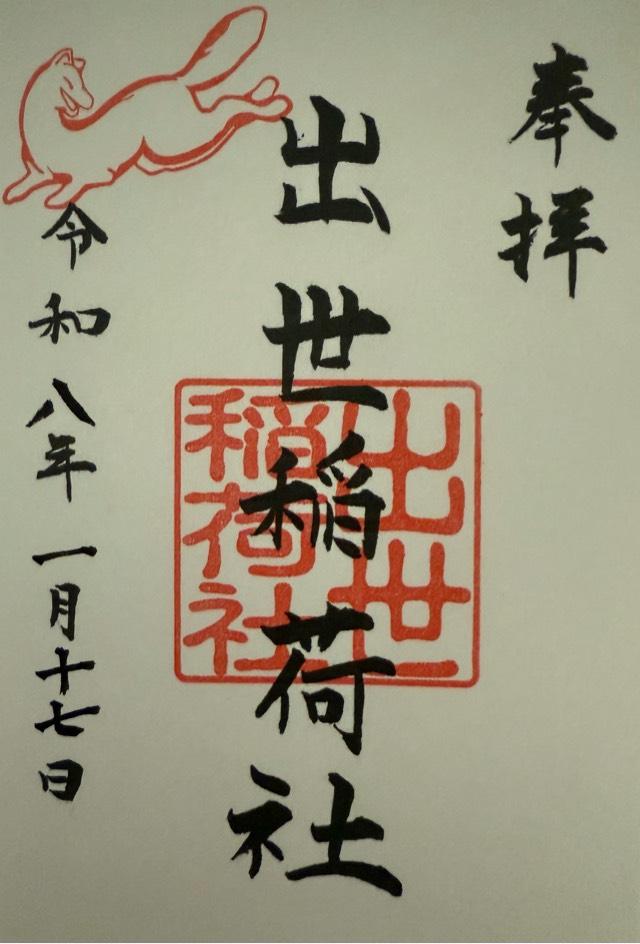 奉拝
出世稲荷社
出世
稲荷社
令和八年一月十七日